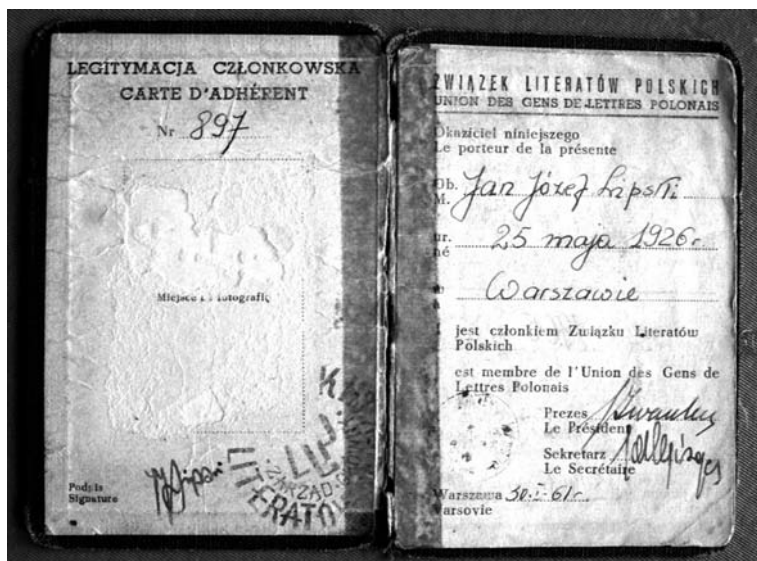 LEGITYMACJA CZŁONKOWSKA
CARTE D'ADHÉRENT
Nr 897
Miejsce na fotografię
Podpis
Signature
JJLipski
ZARZĄD
LITERATÓ
ZWIĄZEK LITERATÓW POLSKICH
UNION DES GENS DE LETTRES POLONAIS
Okaziciel niniejszego
Le porteur de la présente
Ob.
M. Jan Józef Lipski
ur.
né 25 maja 1926r.
w
à Warszawie
jest członkiem Związku Literatów
Polskich
est membre de l'Union des Gens de
Lettres Polonais
Prezes
Le Président
Sekretarz
Le Secrétaire
Warszawa 30.I.61r.
Varsovie